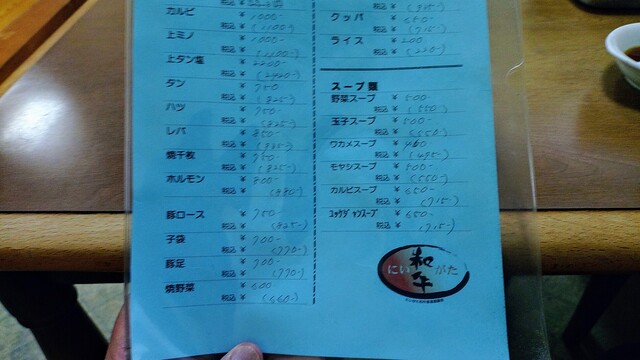 カルビ ¥ 1000-
税込 ¥ (1100-)
上ミノ ¥ 1000-
税込 ¥ (1100-)
上タン塩 ¥ 2200-
税込 ¥ (2420-)
タン ¥ 750
税込 ¥ (825-)
ハツ ¥ 750-
税込 ¥ (825-)
レバ ¥ 850-
税込 ¥
焼千枚 ¥ 750-
税込 ¥ (825-)
ホルモン ¥ 800-
税込 ¥ (880-)
豚ロース ¥ 750-
税込 ¥ (825-)
子袋 ¥ 700-
税込 ¥ (770-)
豚足 ¥ 700-
税込 ¥ (770-)
焼野菜 ¥ 600
税込 ¥ (660-)
税込 ¥
クッパ ¥ 650-
税込 ¥ (715-)
ライス ¥ 200
税込 ¥ (220-)
スープ類
野菜スープ ¥ 500-
税込 ¥ (550-)
玉子スープ ¥ 500-
税込 ¥ (550-)
ワカメスープ ¥ 450
税込 ¥ (495-)
モヤシスープ ¥ 500-
税込 ¥ (550-)
カルビスープ ¥ 650-
税込 ¥ (715-)
ユッケジャンスープ ¥ 650-
税込 ¥ (715-)
にいがた
和牛